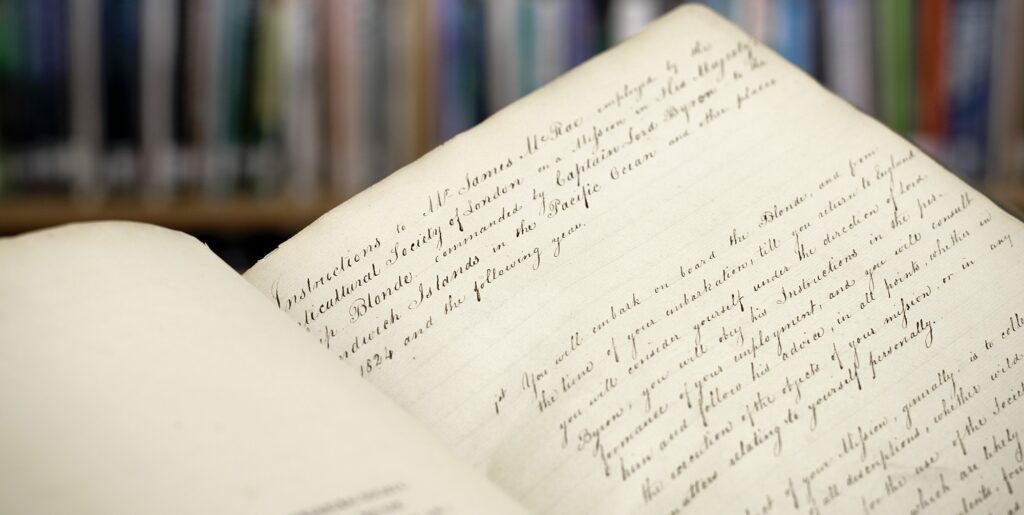 Instructions to Mr James McRae employed by the
ticultural Society of London on a Mission in His Majesty's
ip Blonde commanded by Captain Lord Byron to the
ndwich Islands in the Pacific Ocean and other places
1824 and the following year.
1st You will embark on board the Blonde, and from
the time of your embarkation, till you return to England
you will consider yourself under the direction of Lord
Byron, you will obey his Instructions in the per-
formance of your employment, and you will consult
him and follow his advice, in all points, whether in
the execution of the objects of your mission, or in any
matters relating to yourself personally.
ject of your Mission, generally, is to colle
of all descriptions, whether wild
for the use of the Societ
which are likely